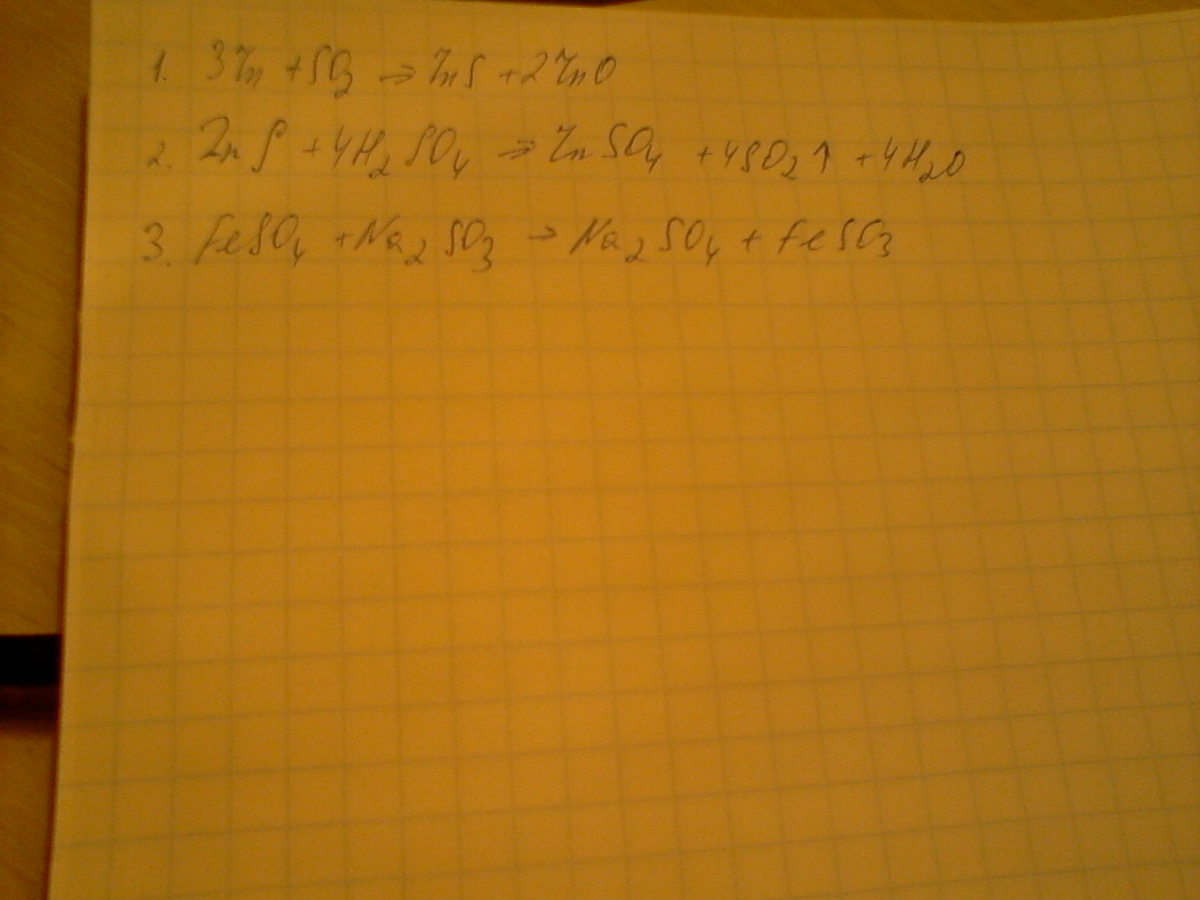 1. 3Zn + SO2 → ZnS + 2ZnO
2. ZnS + 4H2SO4 → ZnSO4 + 4SO2↑ + 4H2O
3. FeSO4 + Na2SO3 → Na2SO4 + FeSO3